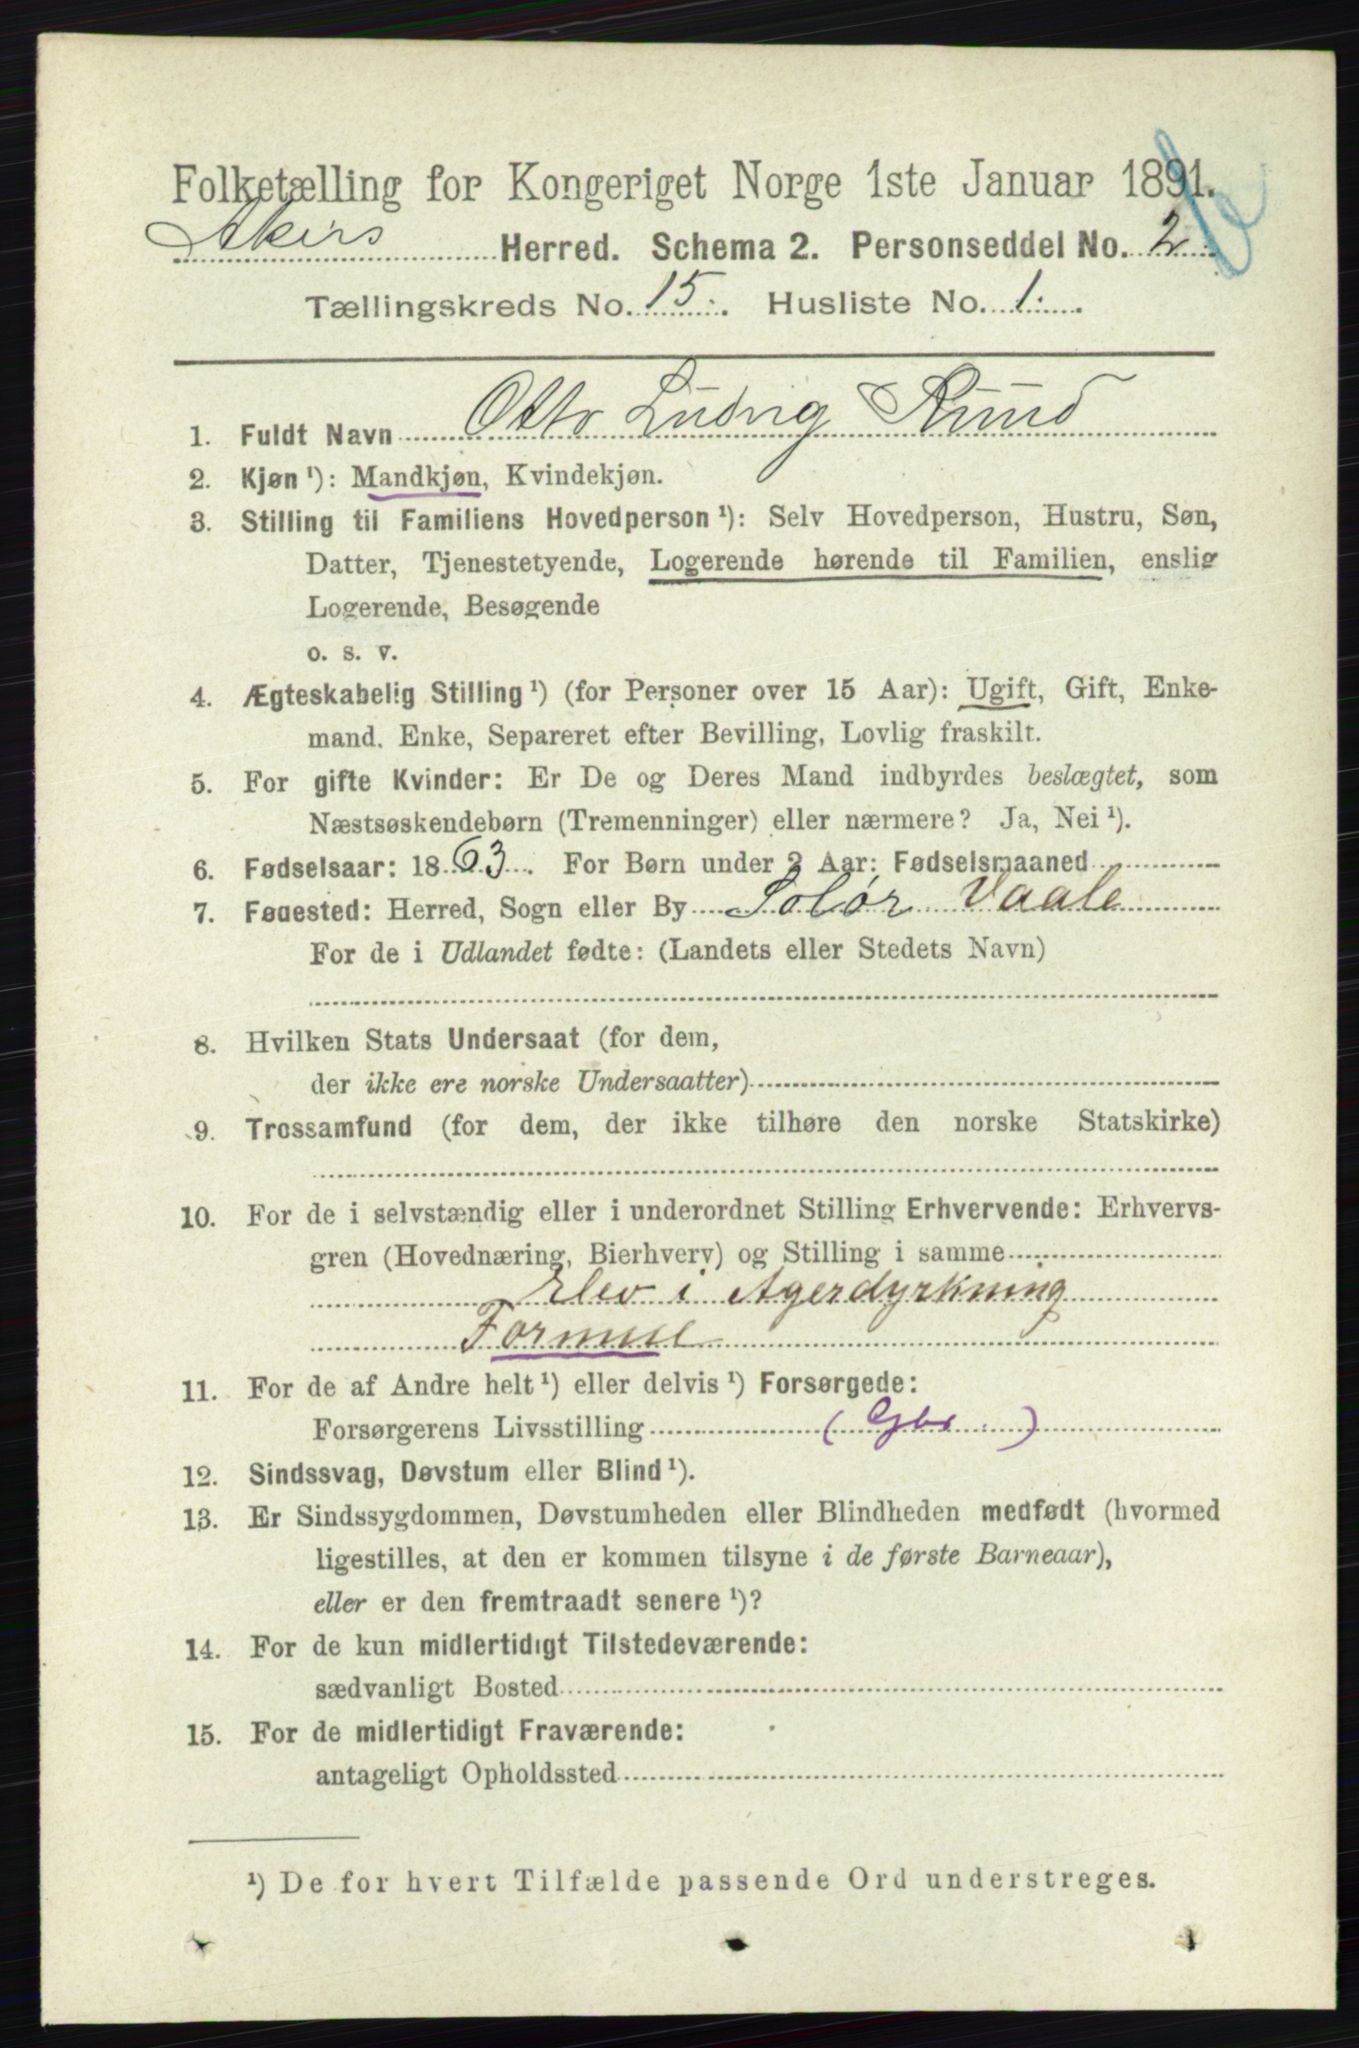 Folketælling for Kongeriget Norge 1ste Januar 1891.
Akers Herred. Schema 2. Personseddel No. 2
Tællingskreds No. 15. Husliste No. 1.
1. Fuldt Navn Otto Ludvig Ruud
2. Kjøn ¹): Mandkjøn, Kvindekjøn.
3. Stilling til Familiens Hovedperson ¹): Selv Hovedperson, Hustru, Søn,
Datter, Tjenestetyende, Logerende hørende til Familien, enslig
Logerende, Besøgende
o. s. v.
4. Ægteskabelig Stilling ¹) (for Personer over 15 Aar): Ugift, Gift, Enke-
mand. Enke, Separeret efter Bevilling, Lovlig fraskilt.
5. For gifte Kvinder: Er De og Deres Mand indbyrdes beslægtet, som
Næstsøskendebørn (Tremenninger) eller nærmere? Ja, Nei ¹).
6. Fødselsaar: 1863. For Børn under 2 Aar: Fødselsmaaned
7. Fødested: Herred, Sogn eller By Solør Vaale
For de i Udlandet fødte: (Landets eller Stedets Navn)
8. Hvilken Stats Undersaat (for dem,
der ikke ere norske Undersaatter)
9. Trossamfund (for dem, der ikke tilhøre den norske Statskirke)
10. For de i selvstændig eller i underordnet Stilling Erhvervende: Erhvervs-
gren (Hovednæring, Bierhverv) og Stilling i samme
Elev i Agerdyrkning
11. For de af Andre helt ¹) eller delvis ¹) Forsørgede:
Forsørgerens Livsstilling (Gbr.)
12. Sindssvag, Døvstum eller Blind ¹).
13. Er Sindssygdommen, Døvstumheden eller Blindheden medfødt (hvormed
ligestilles, at den er kommen tilsyne i de første Barneaar),
eller er den fremtraadt senere ¹)?
14. For de kun midlertidigt Tilstedeværende:
sædvanligt Bosted
15. For de midlertidigt Fraværende:
antageligt Opholdssted
¹) De for hvert Tilfælde passende Ord understreges.